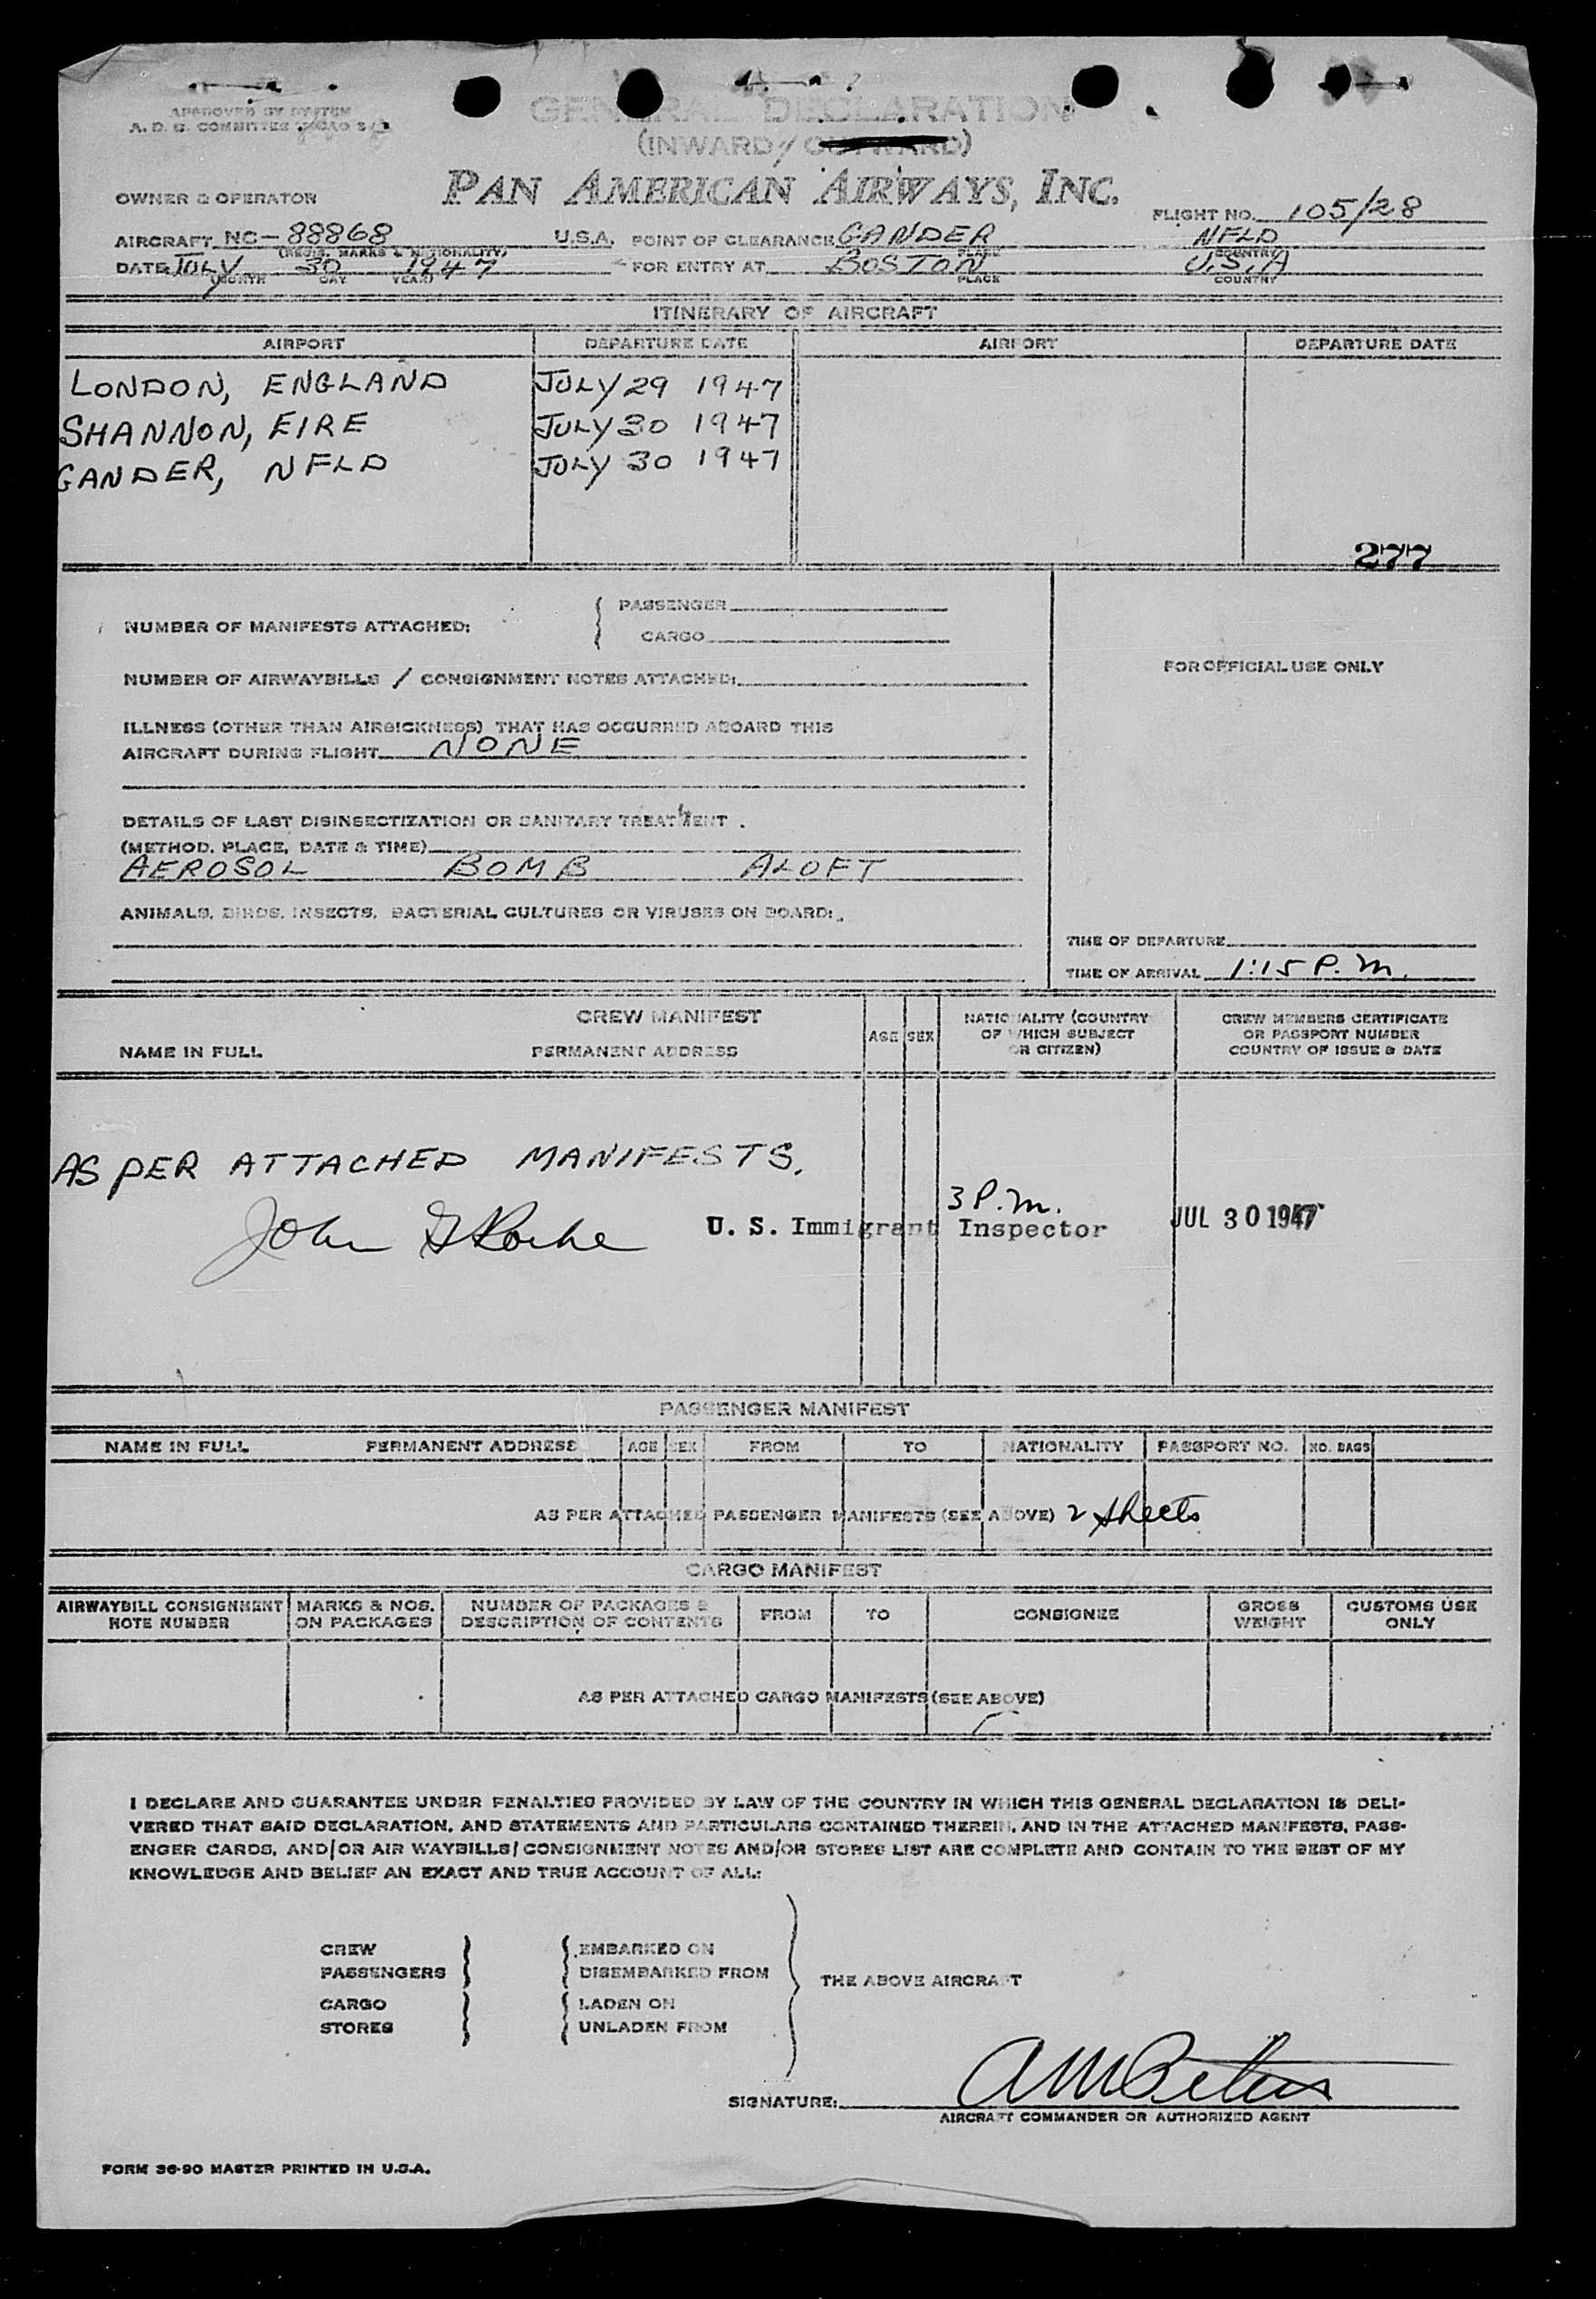 APPROVED BY SYSTEM
A. D. C. COMMITTEE
GENERAL DECLARATION
(INWARD / OUTWARD)
OWNER & OPERATOR PAN AMERICAN AIRWAYS, INC. FLIGHT NO. 105/28
AIRCRAFT NC-88868 U.S.A. POINT OF CLEARANCE GANDER NFLD
(REGIS. MARKS & NATIONALITY) PLACE COUNTRY
DATE JULY 30 1947 FOR ENTRY AT BOSTON U.S.A
(MONTH DAY YEAR) PLACE COUNTRY
ITINERARY OF AIRCRAFT
AIRPORT DEPARTURE DATE AIRPORT DEPARTURE DATE
LONDON, ENGLAND JULY 29 1947
SHANNON, EIRE JULY 30 1947
GANDER, NFLD JULY 30 1947
277
PASSENGER
NUMBER OF MANIFESTS ATTACHED:
CARGO
FOR OFFICIAL USE ONLY
NUMBER OF AIRWAYBILLS / CONSIGNMENT NOTES ATTACHED:
ILLNESS (OTHER THAN AIRSICKNESS) THAT HAS OCCURRED ABOARD THIS
AIRCRAFT DURING FLIGHT NONE
DETAILS OF LAST DISINSECTIZATION OR SANITARY TREATMENT.
(METHOD, PLACE, DATE & TIME)
AEROSOL BOMB ALOFT
ANIMALS, BIRDS, INSECTS, BACTERIAL CULTURES OR VIRUSES ON BOARD:
TIME OF DEPARTURE
TIME OF ARRIVAL 1:15 P.M.
CREW MANIFEST
NAME IN FULL PERMANENT ADDRESS AGE SEX NATIONALITY (COUNTRY OF WHICH SUBJECT OR CITIZEN) CREW MEMBERS CERTIFICATE OR PASSPORT NUMBER COUNTRY OF ISSUE & DATE
AS PER ATTACHED MANIFESTS.
3 P.M.
John G Roche U. S. Immigrant Inspector JUL 30 1947
PASSENGER MANIFEST
NAME IN FULL PERMANENT ADDRESS AGE SEX FROM TO NATIONALITY PASSPORT NO. NO. BAGS
AS PER ATTACHED PASSENGER MANIFESTS (SEE ABOVE) 2 sheets
CARGO MANIFEST
AIRWAYBILL CONSIGNMENT NOTE NUMBER MARKS & NOS. ON PACKAGES NUMBER OF PACKAGES & DESCRIPTION OF CONTENTS FROM TO CONSIGNEE GROSS WEIGHT CUSTOMS USE ONLY
AS PER ATTACHED CARGO MANIFESTS (SEE ABOVE)
I DECLARE AND GUARANTEE UNDER PENALTIES PROVIDED BY LAW OF THE COUNTRY IN WHICH THIS GENERAL DECLARATION IS DELI-
VERED THAT SAID DECLARATION, AND STATEMENTS AND PARTICULARS CONTAINED THEREIN, AND IN THE ATTACHED MANIFESTS, PASS-
ENGER CARDS, AND/OR AIR WAYBILLS/CONSIGNMENT NOTES AND/OR STORES LIST ARE COMPLETE AND CONTAIN TO THE BEST OF MY
KNOWLEDGE AND BELIEF AN EXACT AND TRUE ACCOUNT OF ALL:
CREW EMBARKED ON
PASSENGERS DISEMBARKED FROM
THE ABOVE AIRCRAFT
CARGO LADEN ON
STORES UNLADEN FROM
SIGNATURE:
AIRCRAFT COMMANDER OR AUTHORIZED AGENT
FORM 36-90 MASTER PRINTED IN U.S.A.